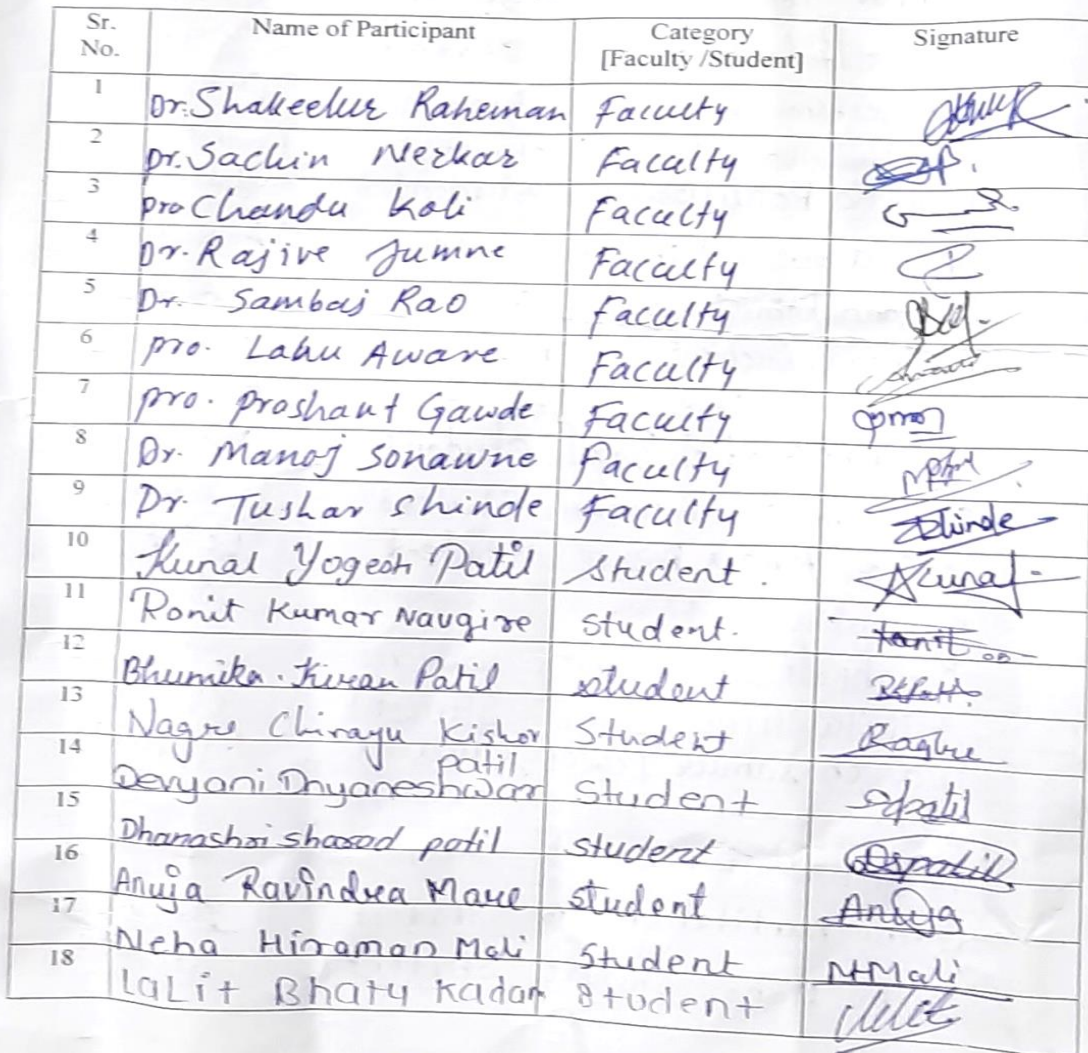 Sr. No. Name of Participant Category [Faculty /Student] Signature
1 Dr. Shakeelur Raheman Faculty
2 Dr. Sachin Nerkar Faculty
3 pro Chandu Koli Faculty
4 Dr. Rajive Jumne Faculty
5 Dr. Sambaj Rao Faculty
6 pro. Lahu Aware Faculty
7 pro. proshant Gawde Faculty
8 Dr. Manoj Sonawne Faculty
9 Dr. Tushar Shinde Faculty Shinde
10 Kunal Yogesh Patil Student. Kunal
11 Ronit Kumar Navgire Student. Ronit
12 Bhumika. Kiran Patil student
13 Nagre Chirayu Kishor Student
14 Devyani Dnyaneshwar patil Student
15 Dhanashri sharad patil student Dspatil
16 Anuja Ravindra More Student Anuja
17 Neha Hiraman Mali Student NHMali
18 LaLit Bhatu Kadam Student